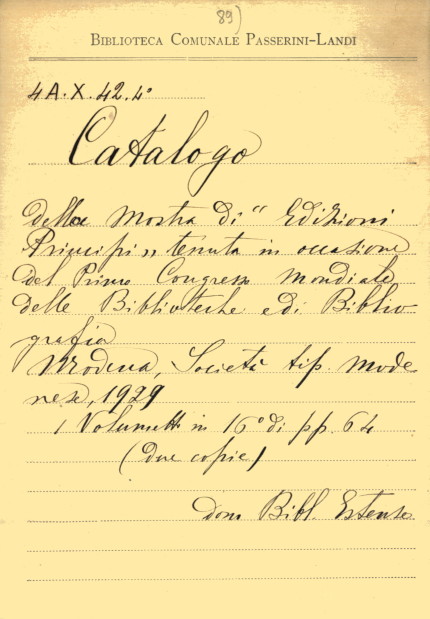 89)
BIBLIOTECA COMUNALE PASSERINI-LANDI
4A.X.42.4°
Catalogo
della Mostra di "Edizioni
Principi" tenuta in occasione
del Primo Congresso Mondiale
delle Biblioteche e di Biblio
grafia
Modena, Società tip. Mode
nese, 1929
1 Volumetto in 16° di pp. 64
(Due copie)
dono Bibl. Estense